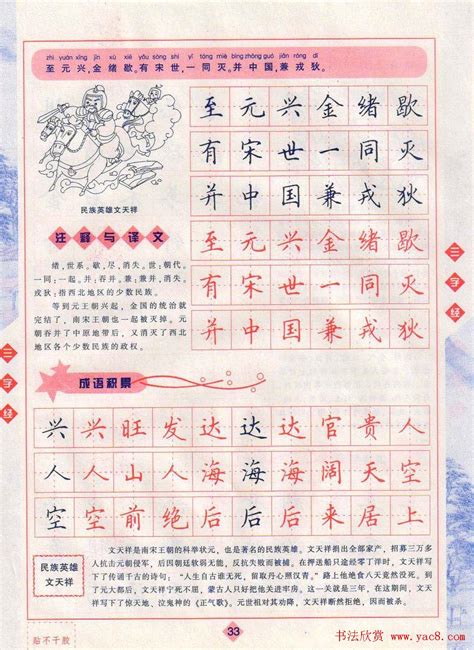 zhì yuán xīng jīn xù xiē yǒu sòng shì yī tóng miè bìng zhōng guó jiān róng dí
至元兴,金绪歇。有宋世,一同灭。并中国,兼戎狄。
至元兴金绪歇
有宋世一同灭
并中国兼戎狄
至元兴金绪歇
有宋世一同灭
并中国兼戎狄
民族英雄文天祥
注释与译文
绪,世系。歇,尽,消失。世:朝代。
一同:一起。并:吞并。兼:兼并,消失。
戎狄:指西北地区的少数民族。
等到元王朝兴起,金国的统治就
完结了,南宋王朝也一起被灭掉。元
朝吞并了中原地带后,又消灭了西北
各个少数民族的政权。
三字经
三字经
成语积累
兴兴旺发达达官贵人
人人山人海海海阔天空
空空前绝后后后来居上
民族英雄
文天祥
文天祥是南宋王朝的科举状元,也是著名的民族英雄。文天祥捐出全部家产,招募三万多
人抗击元朝侵略,后因朝廷软弱无能,反抗失败而被捕。在押送船只途经零丁洋时,文天祥写
下了传诵千古的诗句:“人生自古谁无死,留取丹心照汗青。”路上他绝食八天竟然没死。到
了元大都后,文天祥宁死不屈,蒙古人只好把他关进牢房。这一关就是三年,在这期间,文天
祥写下了惊天地、泣鬼神的《正气歌》。元世祖对其劝降,文天祥断然拒绝,因而被杀。
33
贴不干胶
书法欣赏
www.yac8.com